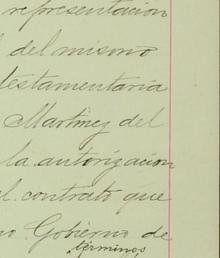 representacion
del mismo
testamentaria
Martinez del
la autorizacion
el contrato que
no Gobierno de
términos